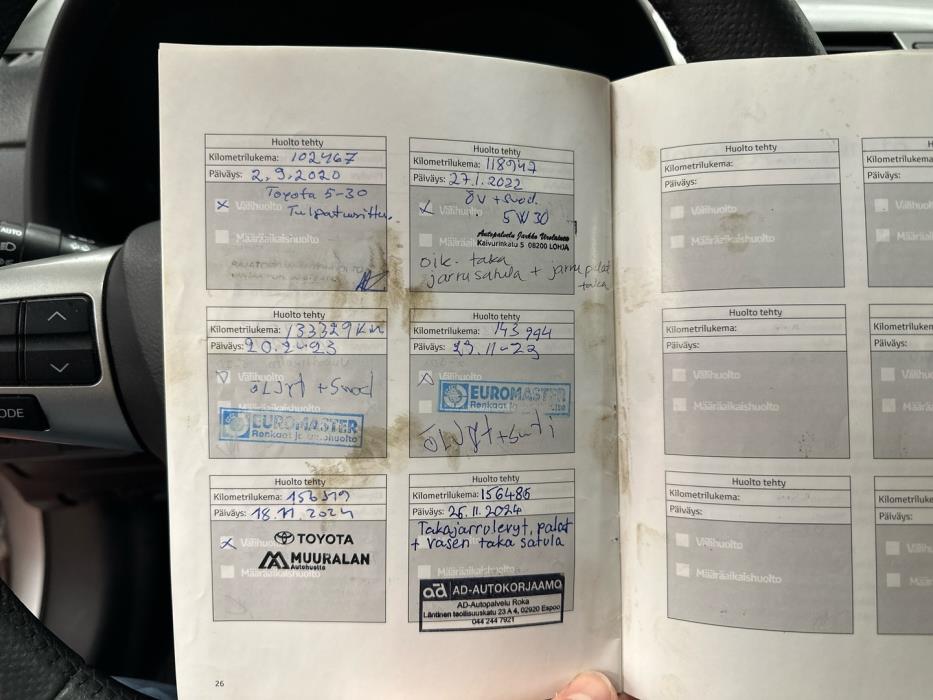 Huolto tehty
Kilometrilukema: 102467
Päiväys: 2.9.2020
Toyota 5-30
Välihuolto
Määräaikaishuolto
Huolto tehty
Kilometrilukema: 118947
Päiväys: 27.1.2022
ÖV + suod.
Välihuolto 5W30
Autopalvelu Jarkko
Kaivurinkatu 5 08200 LOHJA
Määräaik
oik. taka
jarrusatula + jarrupalat
taka
Huolto tehty
Kilometrilukema: 133329 km
Päiväys: 20.2-23
Välihuolto
öljyt + suod
EUROMASTER
Renkaat ja autohuolto
Huolto tehty
Kilometrilukema: 143 994
Päiväys: 23.11-23
Välihuolto
EUROMASTER
Renkaat ja autohuolto
Huolto tehty
Kilometrilukema: 156319
Päiväys: 18.11.2024
TOYOTA
Välihuolto
MUURALAN
Autohuolto
Määräaikaishuolto
Huolto tehty
Kilometrilukema: 156486
Päiväys: 26.11.2024
Takajarrulevyt, palat
+ vasen taka satula
Määräaikaishuolto
ad AD-AUTOKORJAAMO
AD-Autopalvelu Roka
Läntinen teollisuuskatu 23 A 4, 02920 Espoo
044 244 7921
26
Huolto tehty
Kilometrilukema:
Päiväys:
Välihuolto
Määräaikaishuolto
H
Kilometrilukema
Päiväys:
Välihuolto
Määräaik
Huolto tehty
Kilometrilukema:
Päiväys:
Välihuolto
Määräaikaishuolto
Kilometrilukem
Päiväys:
Välihuolto
Määräaik
Huolto tehty
Kilometrilukema:
Päiväys:
Välihuolto
Määräaikaishuolto
Kilometriluke
Päiväys:
Välihuolto
Määräa
AUTO
ODE